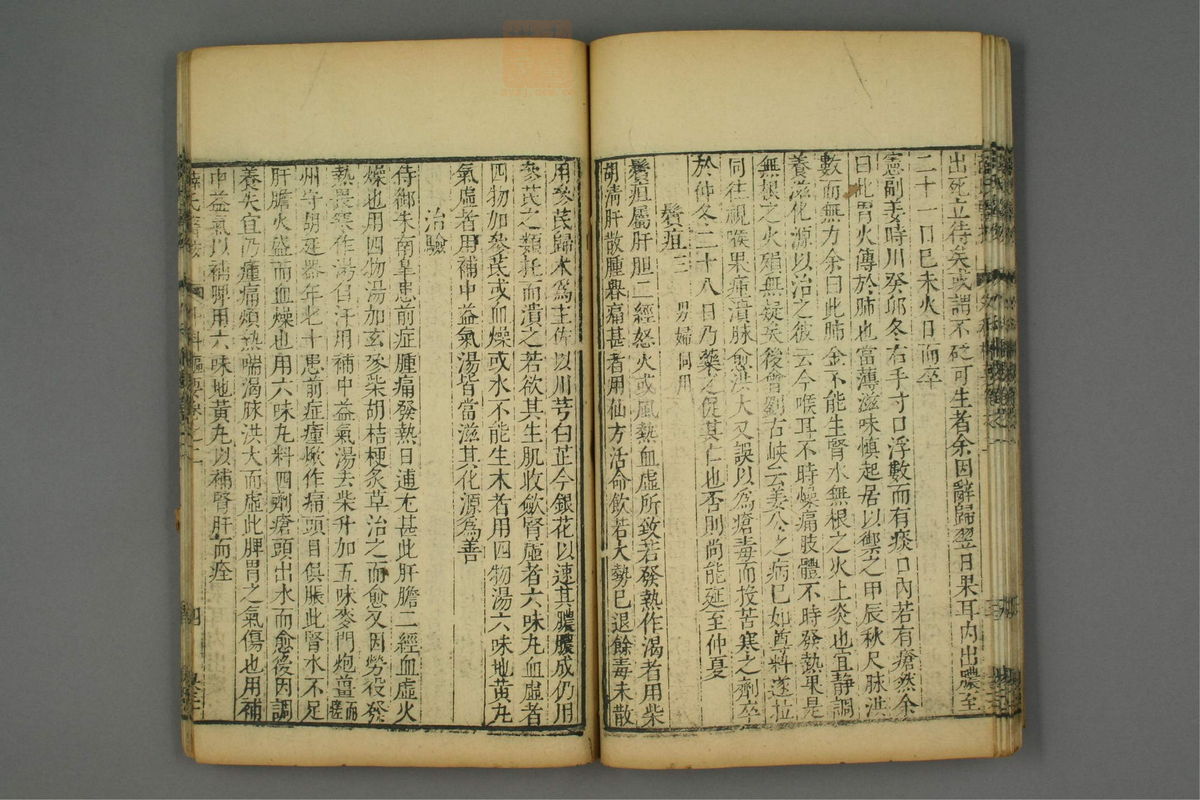 出死立待矣或謂不砭可生者余因辭歸翌日果耳内出膿至
二十一日己未火日而卒
憲副姜時川癸卯冬右手寸口浮數而有痰口内若有瘡然余
曰此胃火傳於肺也當薄滋味慎起居以禦之甲辰秋尺脉洪
數而無力余曰此肺金不能生腎水無根之火上炎也宜静調
養滋化源以治之彼云今喉耳不時燥痛肢體不時發熱果是
無根之火殞無疑矣後會劉古峽云姜公之病已如尊料遂拉
同往視喉果腫潰脉愈洪大又誤以為瘡毒而投苦寒之劑卒
於仲冬二十八日乃藥之促其亡也否則尚能延至仲夏
鬢疽三 男婦同用
鬢疽屬肝胆二經怒火或風熱血虚所致若發熱作渴者用柴
胡清肝散腫㷔痛甚者用仙方活命飲若大勢已退餘毒未散
用參芪歸术為主佐以川芎白芷今銀花以速其膿膿成仍用
參芪之類托而潰之若欲其生肌收斂腎虚者六味丸血虚者
四物加參芪或血燥或水不能生木者用四物湯六味地黄丸
氣虚者用補中益氣湯皆當滋其化源為善
治驗
侍御朱南臯患前症腫痛發熱日逋尤甚此肝膽二經血虚火
燥也用四物湯加玄參柴胡桔梗炙草治之而愈又因勞役發
熱畏寒作渴自汗用補中益氣湯去柴升加五味麥門炮薑而瘥
州守胡延器年七十患前症腫焮作痛頭目俱脹此腎水不足
肝膽火盛而血燥也用六味丸料四劑瘡頭出水而愈後因調
養失宜仍腫痛煩熱喘渴脉洪大而虚此脾胃之氣傷也用補
中益氣以補脾用六味地黄丸以補腎肝而痊